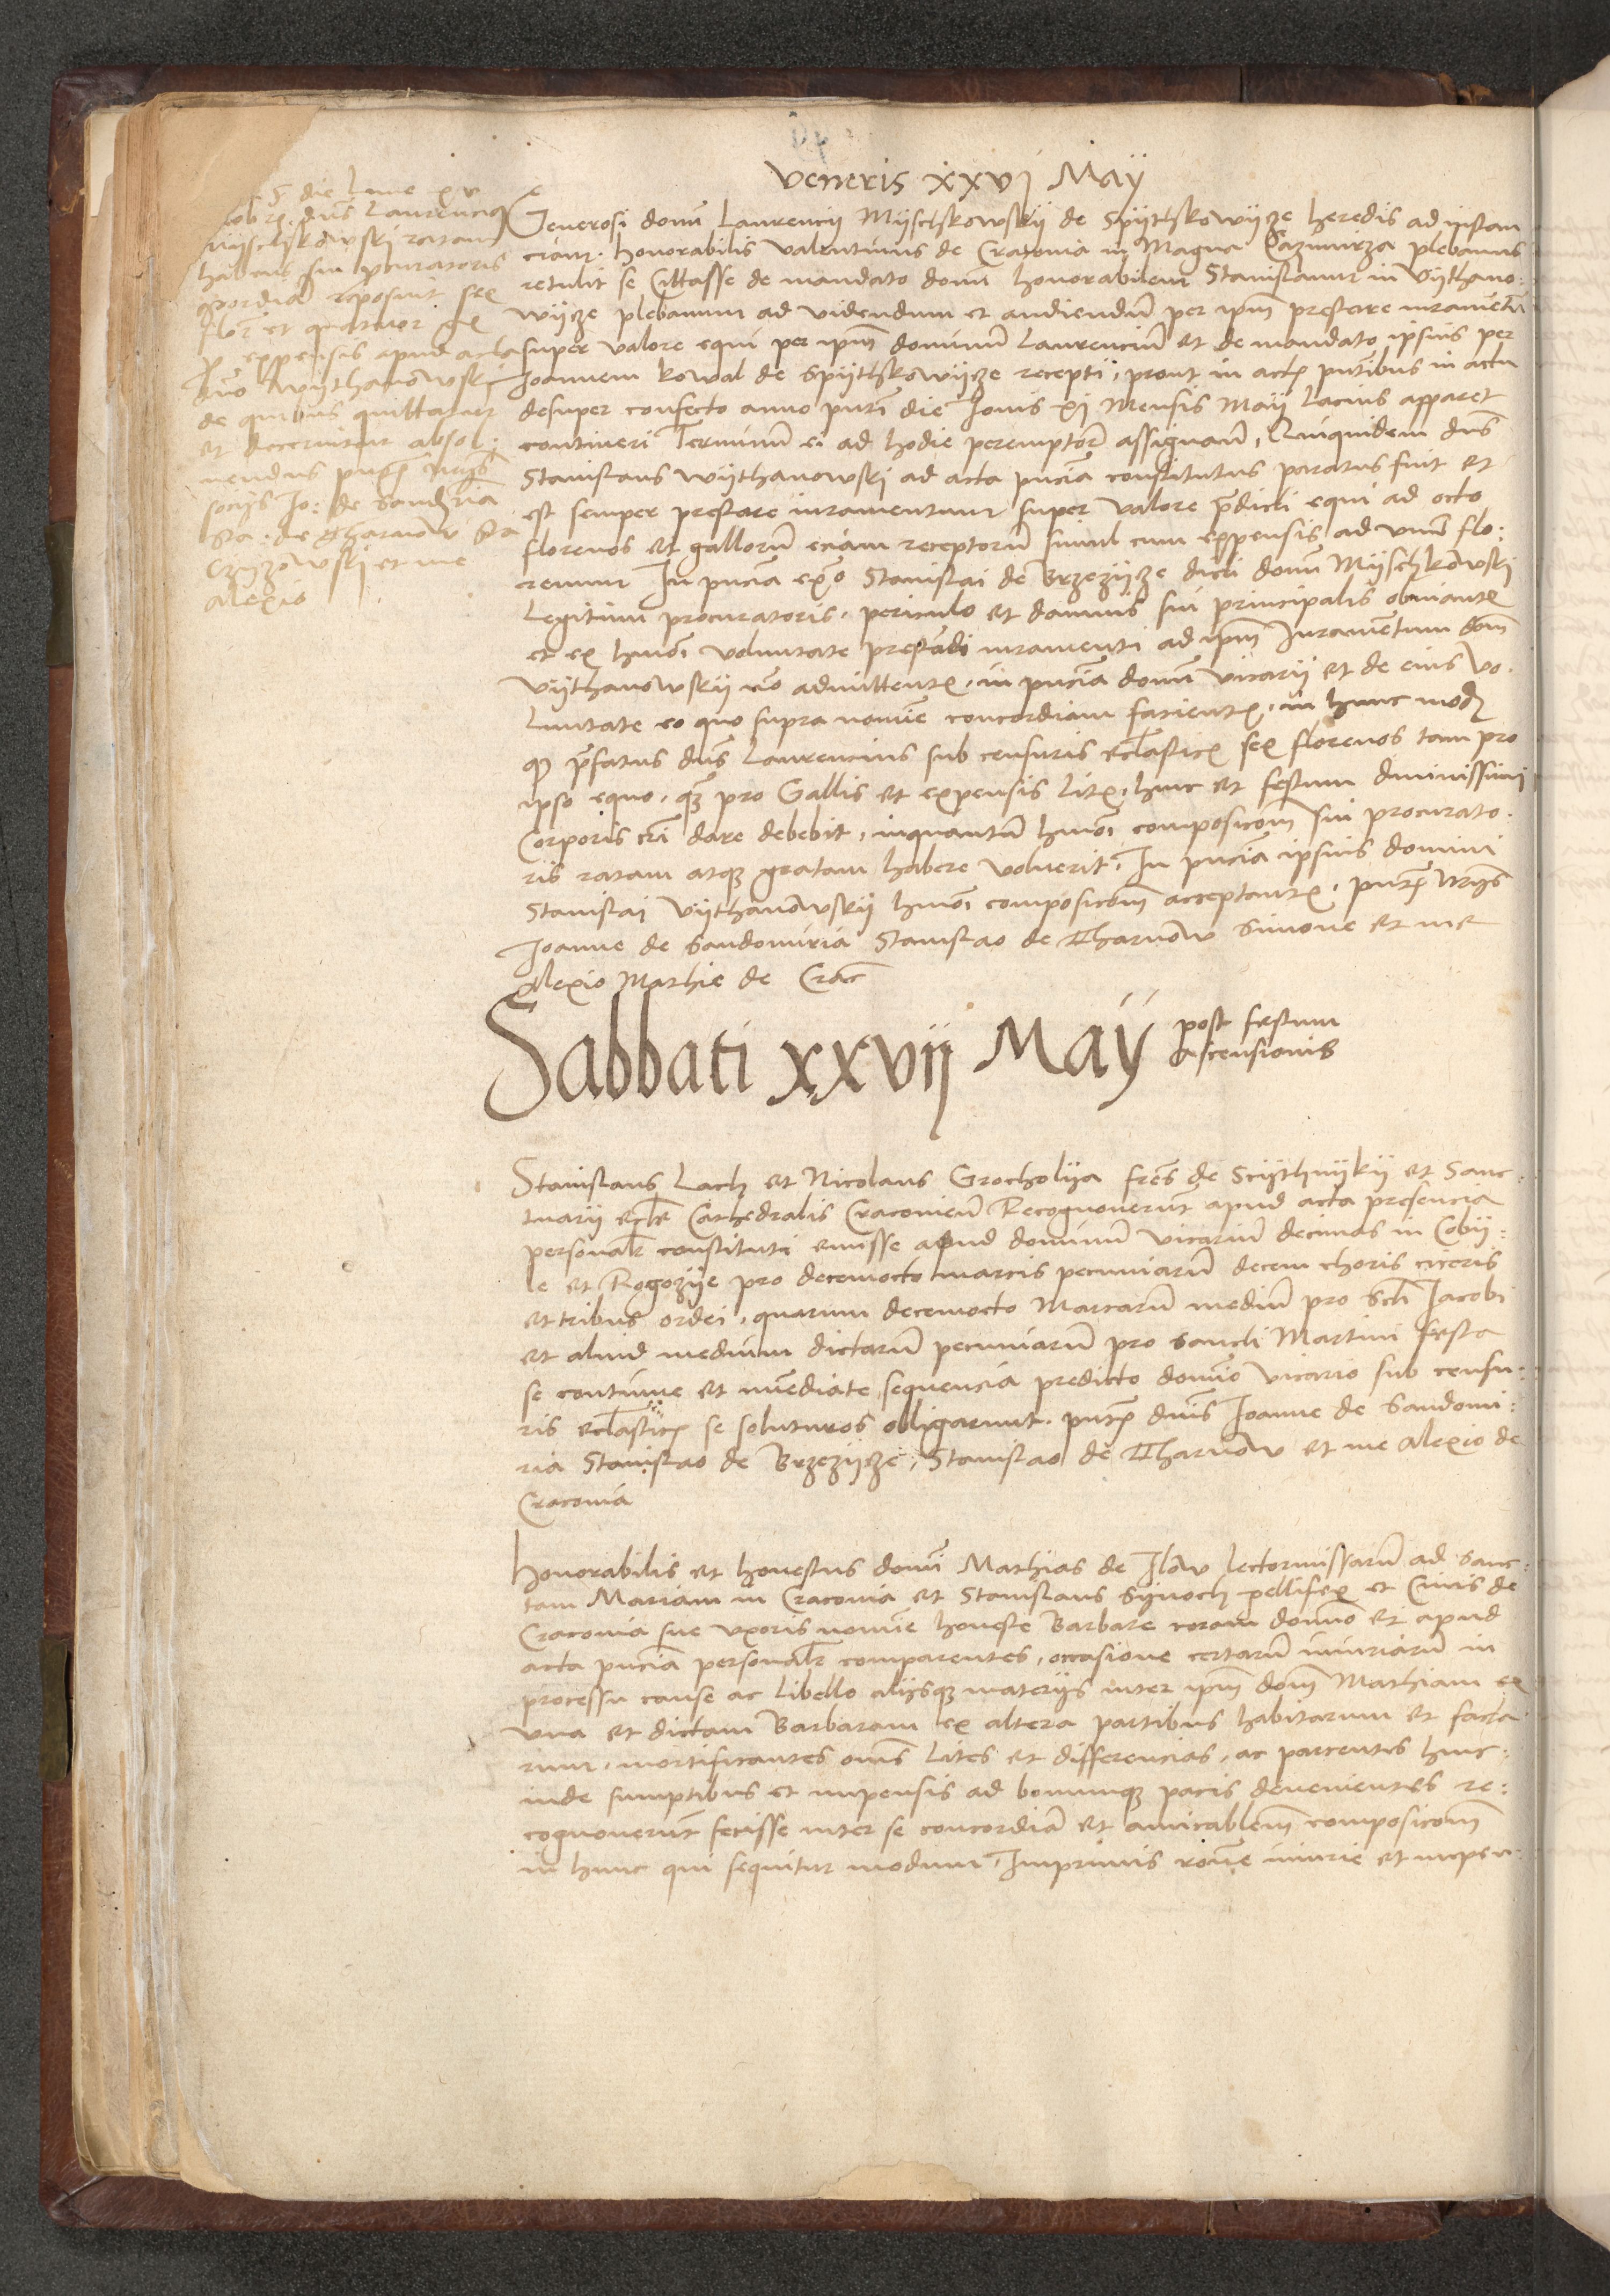 Veneris xxvj Maÿ
die lune xv
dns Laurencius
Mijschkowski ratam
habens sui procuratoris
concordiam reposuit sex
flor et quatuor gr
pro expensis apud acta
dno Wijthanowski
de quibus quittatur
et decernitur absol:
vendus pntibus
socijs Jo: de Sandomiria
Sta: de Tharnow Sta
Czyżowski et me
Alexio
Generosi domi Laurencij Mijschkowskij de Spijthkowijcze heredis ad instan
ciam. honorabilis Valentinus de Cracovia in Magna Cazimirza plebanus
retulit se Cittasse de mandato domi honorabilem Stanislaum in Vijthano:
wijcze plebanum ad videndum et audiendum per ipm prestare iuramentu
super valore equi per ipm dominum Laurencium et de mandato ipsius per
Joannem Kowal de Spijthkowijcze recepti, prout in actis pntibus in actu
desuper confecto anno pnti die Jovis xi Mensis Maij Lacius apparet
contineri Terminum ei ad hodie peremptor assignatum, Quiquidem dns
Stanislaus Wijthanowski ad acta pncia constitutus paratus fuit et
est semper prestare iuramentum super valore pdicti equi ad octo
florenos et gallorum eciam receptorum simul cum expensis ad vnu flo:
renum In pncia Stanislai de Brzezijcze dicti domi Mijschkowski
Legitimi procuratoris, periculo et damnis sui principalis obviantis
et ex hmoi voluntate prestandi iuramenti ad ipm Juramentum dom
Vijthanowskij no admittentis, in pncia domi vicarij et de eius vo
luntate eo quo supra nomine concordiam facientis, in hunc modum
q pfatus dns Laurencius sub censuris eclasticis sex florenos tam pro
ipso equo, quam pro Gallis et expensis litis, hinc et festum divinissimi
Corporis cri dare debebit, inquantum hmoi composicom sui procurato.
ris ratam atque gratam habere voluerit, In pncia ipsius domini
Stanislai Vijthanowskij hmoi composicom acceptantis, pntibus
Joanne de Sandomiria Stanislao de Tharnow Simone et me
Alexio Mathie de Crac
Sabbati xxvij Maÿ post festum
ascensionis
Stanislaus Lach et Nicolaus Grocholija fres de Scijthnijkij et Sanc:
tuarij eclie Cathedralis Cracovien Recognoverunt apud acta presencia
personalr constituti emisse apud dominum vicarium decimas in Cobij:
le et Rogozije pro decemocto marcis pecuniarum decem choris ciceris
et tribus ordei, quarum decemocto Marcarum medium pro scti Jacobi
et aliud medium dictarum pecuniarum pro sancti Martini festa
se continue et imediate sequencia predicto domino vicario sub censu:
ris eclasticis se soluturos obligarunt. pntibus dnis Joanne de Sandomi:
ria Stanislao de Brzezijcze, Stanislao de Tharnow et me Alexio de
Cracovia
Honorabilis et honestus domi Mathias de Ilow lectormissarum ad sanc:
tam Mariam in Cracovia et Stanislaus Sijnoch pellifex et Civis de
Cracovia sue vxoris nomine honeste Barbare coram domino et apud
acta pncia personalr comparentes, occasione certarum iniuriarum in
processu cause ac Libello alijsque materijs inter ipm dom Mathiam ex
vna et dictam Barbaram ex altera partibus habitarum et facta
rum, mortificantes omes Lites et differencias, ac parcentes hinc
inde sumptibus et impensis ad bonumque pacis devenientes re:
cognoverunt fecisse inter se concordia et amicablem composicom
in hunc qui sequitur modum, Imprimis rone iniurie et impen: